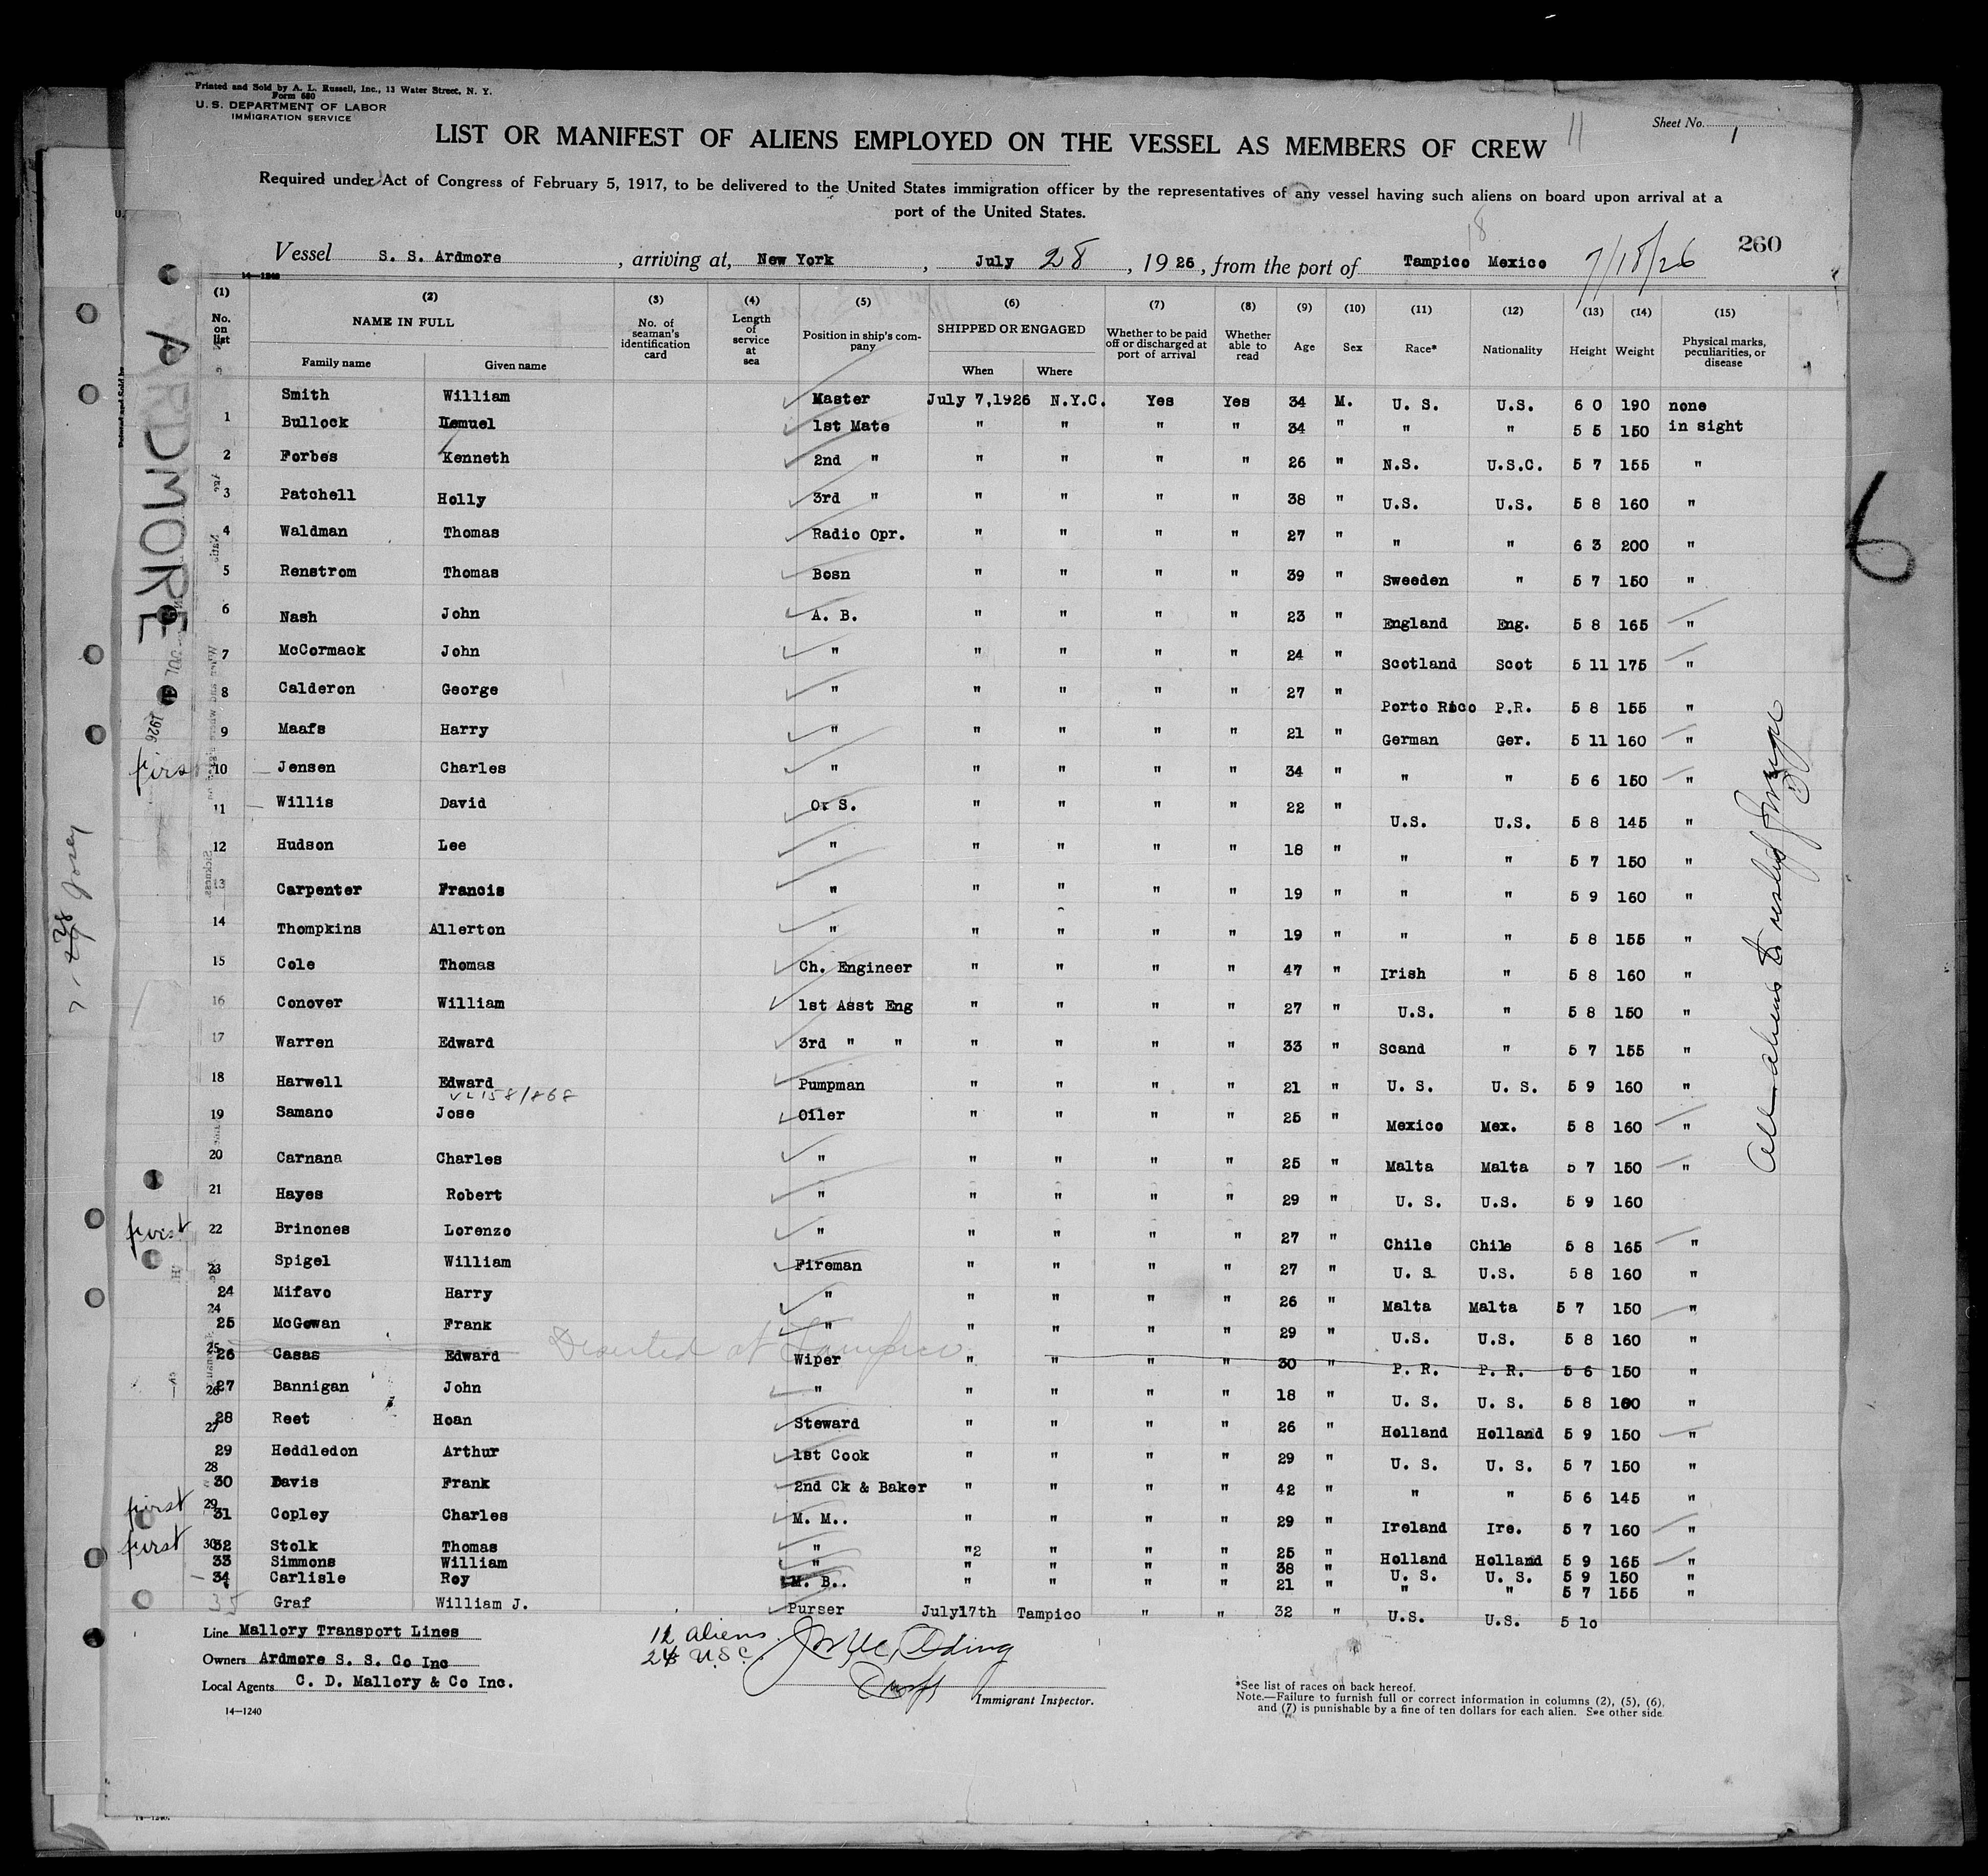 Printed and Sold by A. L. Russell, Inc., 13 Water Street, N. Y.
Form 680
U. S. DEPARTMENT OF LABOR
IMMIGRATION SERVICE
Sheet No. 1
LIST OR MANIFEST OF ALIENS EMPLOYED ON THE VESSEL AS MEMBERS OF CREW 11
Required under Act of Congress of February 5, 1917, to be delivered to the United States immigration officer by the representatives of any vessel having such aliens on board upon arrival at a
port of the United States.
18
260
Vessel S. S. Ardmore, arriving at, New York, July 28, 1926, from the port of Tampico Mexico 7/18/26
14—1240
(1) (2) (3) (4) (5) (6) (7) (8) (9) (10) (11) (12) (13) (14) (15)
No. on list NAME IN FULL Family name Given name No. of seaman's identification card Length of service at sea Position in ship's company SHIPPED OR ENGAGED When Where Whether to be paid off or discharged at port of arrival Whether able to read Age Sex Race* Nationality Height Weight Physical marks, peculiarities, or disease
Smith William Master July 7,1926 N.Y.C. Yes Yes 34 M. U. S. U.S. 6 0 190 none
1 Bullock Lemuel 1st Mate " " " " 34 " " " 5 5 150 in sight
2 Forbes Kenneth 2nd " " " " " 26 " N.S. U.S.C. 5 7 155 "
3 Patchell Holly 3rd " " " " " 38 " U.S. U.S. 5 8 160 "
4 Waldman Thomas Radio Opr. " " " " 27 " " " 6 3 200 "
5 Renstrom Thomas Bosn " " " " 39 " Sweeden " 5 7 150 "
6 Nash John A. B. " " " " 23 " England Eng. 5 8 165 "
7 McCormack John " " " " " 24 " Scotland Scot 5 11 175 "
8 Calderon George " " " " " 27 " Porto Rico P.R. 5 8 155 "
9 Maafs Harry " " " " " 21 " German Ger. 5 11 160 "
first 10 Jensen Charles " " " " " 34 " " " 5 6 150 "
11 Willis David O. S. " " " " 22 " U.S. U.S. 5 8 145 "
12 Hudson Lee " " " " " 18 " " " 5 7 150 "
13 Carpenter Francis " " " " " 19 " " " 5 9 160 "
14 Thompkins Allerton " " " " " 19 " " " 5 8 155 "
15 Cole Thomas Ch. Engineer " " " " 47 " Irish " 5 8 160 "
16 Conover William 1st Asst Eng " " " " 27 " U.S. " 5 8 150 "
17 Warren Edward 3rd " " " " " " 33 " Scand " 5 7 155 "
18 Harwell Edward Pumpman " " " " 21 " U. S. U. S. 5 9 160 "
19 Samano Jose Oiler " " " " 25 " Mexico Mex. 5 8 160 "
20 Carnana Charles " " " " " 25 " Malta Malta 5 7 150 "
21 Hayes Robert " " " " " 29 " U. S. U.S. 5 9 160
first 22 Brinones Lorenzo " " " " " 27 " Chile Chile 5 8 165 "
23 Spigel William Fireman " " " " 27 " U. S U.S. 5 8 160 "
24 24 Mifavo Harry " " " " " 26 " Malta Malta 5 7 150 "
25 McGowan Frank " " " " " 29 " U.S. U.S. 5 8 160 "
25 26 Casas Edward Deserted at Tampico Wiper " " " " 30 " P. R. P. R. 5 6 150 "
26 27 Bannigan John " " " " " 18 " U. S. U. S. 5 8 "
27 28 Reet Hoan Steward " " " " 26 " Holland Holland 5 9 150 "
29 Heddledon Arthur 1st Cook " " " " 29 " U. S. U. S. 5 7 150 "
28 30 Davis Frank 2nd Ck & Baker " " " " 42 " " " 5 6 145 "
first 29 31 Copley Charles M. M.. " " " " 29 " Ireland Ire. 5 7 160 "
first 30 32 Stolk Thomas " "2 " " " 25 " Holland Holland 5 9 165 "
33 Simmons William " " " " " 38 " U. S. U. S. 5 9 150 "
34 Carlisle Roy M. B.. " " " " 21 " " " 5 7 155 "
35 Graf William J. Purser July17th Tampico " " 32 " U.S. U.S. 5 10
Line Mallory Transport Lines
Owners Ardmore S. S. Co Inc
Local Agents C. D. Mallory & Co Inc.
14—1240
12 aliens
U.S.C.
Immigrant Inspector.
*See list of races on back hereof.
Note.—Failure to furnish full or correct information in columns (2), (5), (6), and (7) is punishable by a fine of ten dollars for each alien. See other side.
ARDMORE
1926
6
All aliens to